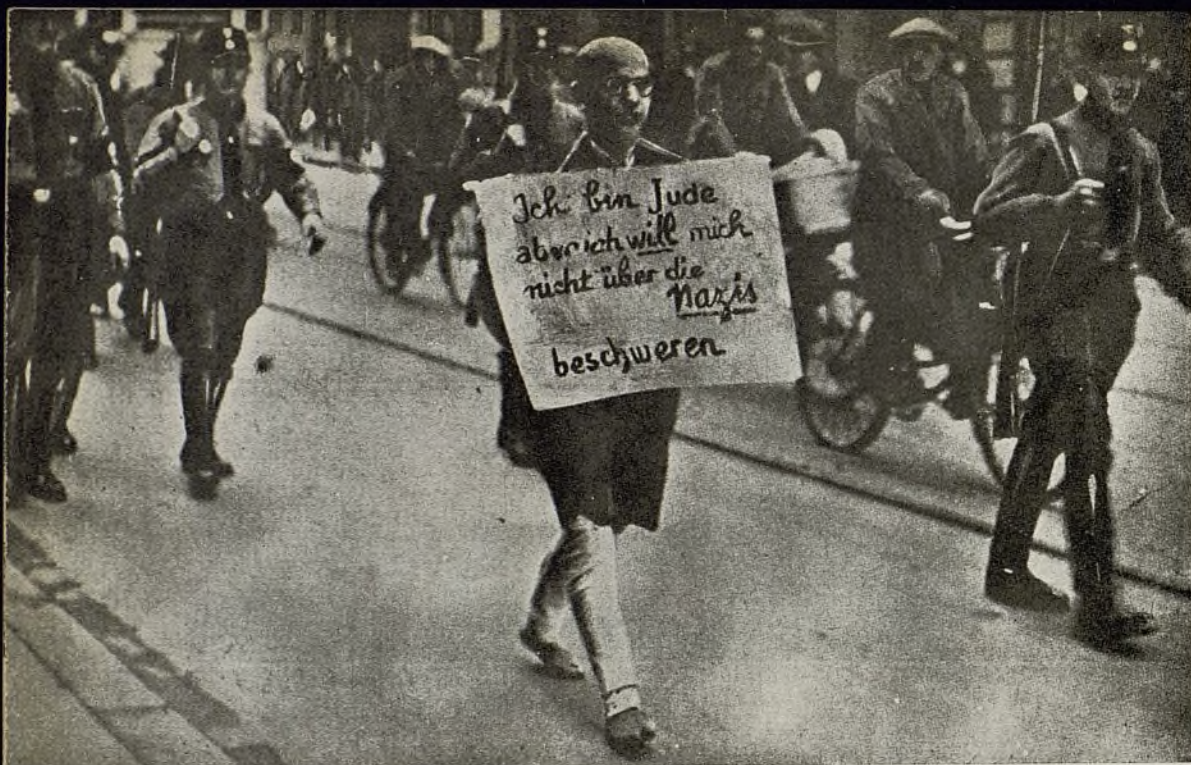 Ich bin Jude
aber ich will mich
nicht über die
Nazis
beschweren